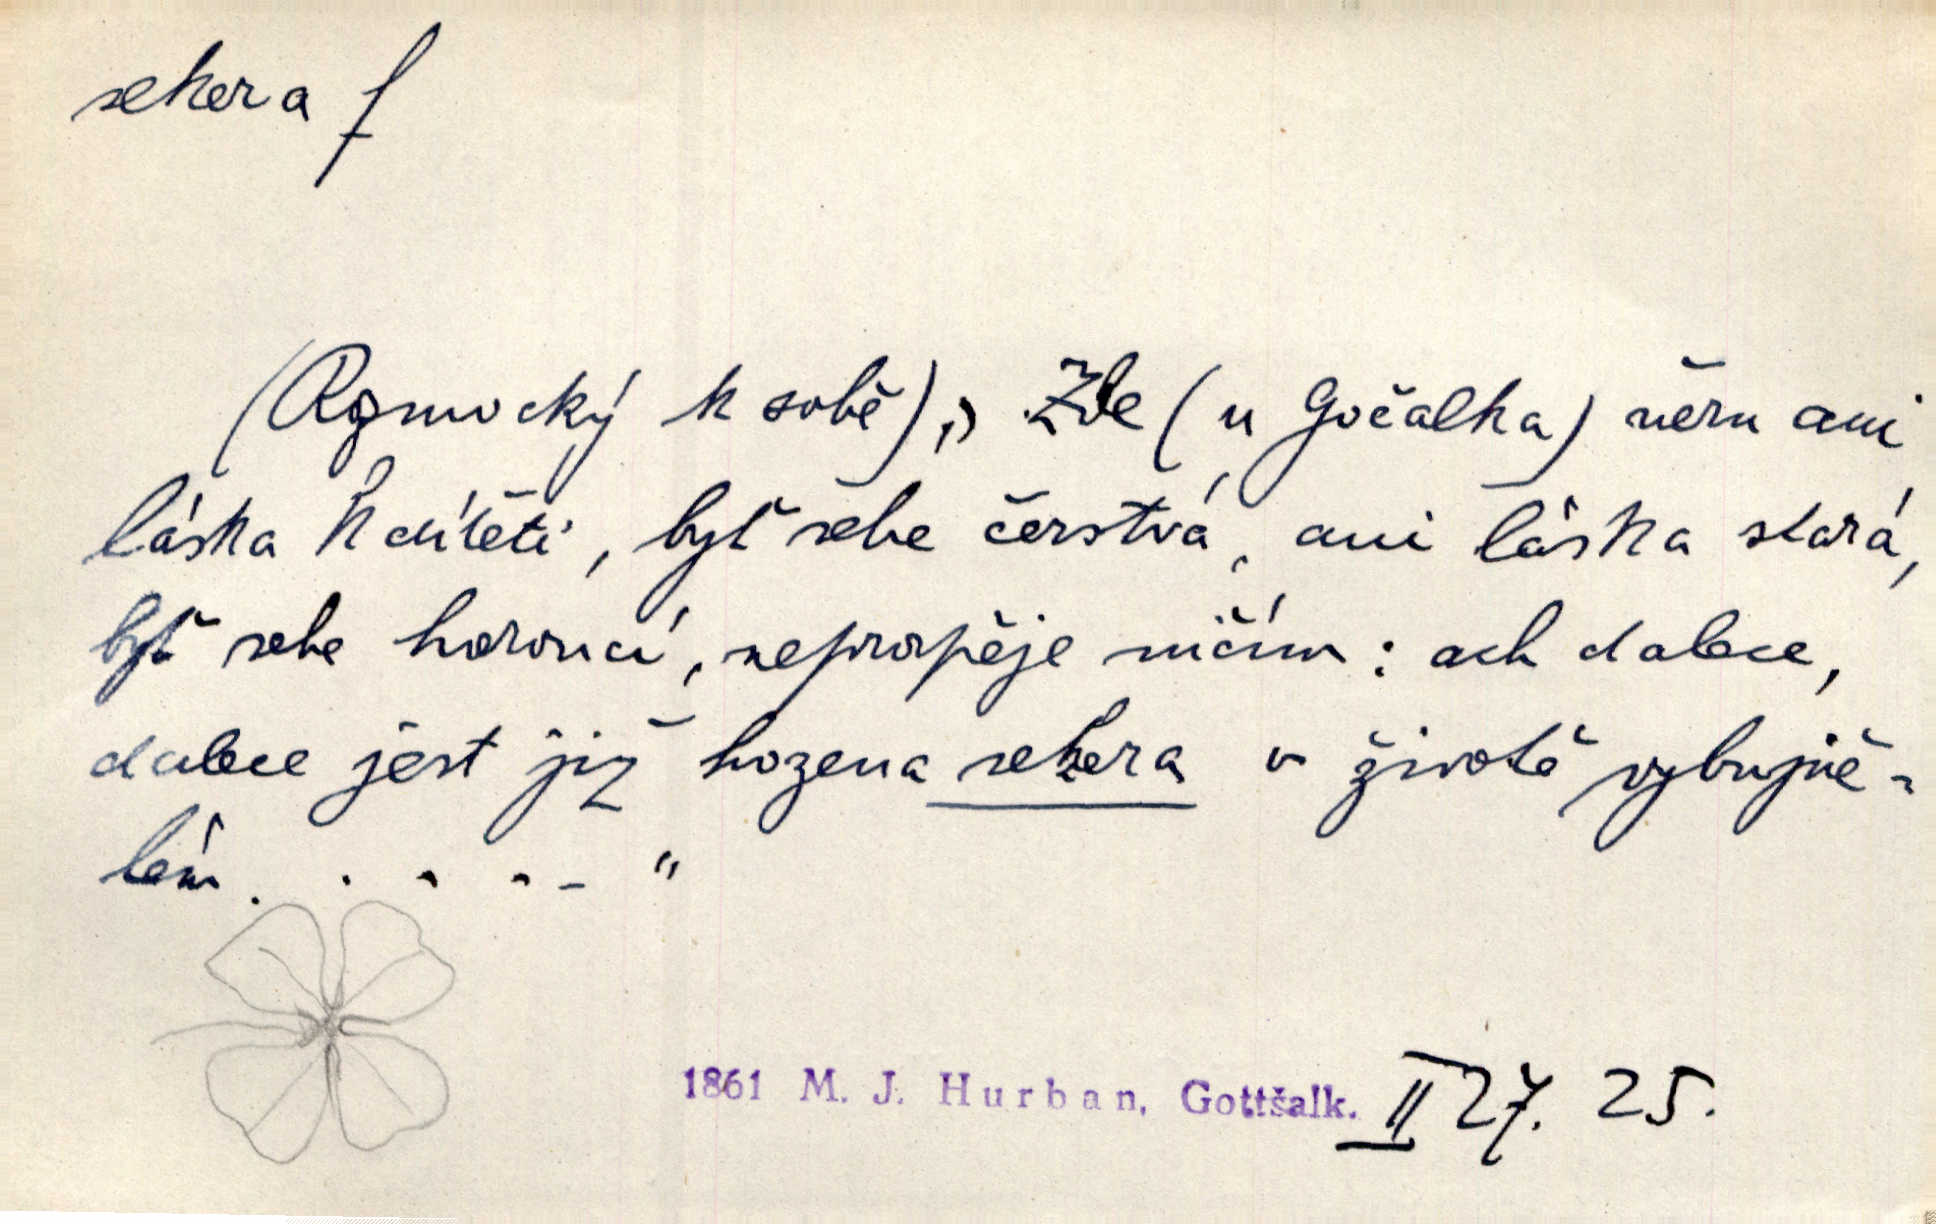 sekera f
(Rozmocký k sobě) „Zde (u Gočalka) věru ani
láska k dítěti, byť sebe čerstvá, ani láska stará,
byť sebe horoucí, neprospěje ničím: ach dalece,
dalece jest již hozena sekera v životě vybujně-
lém. . . . . "
1861 M. J. Hurban, Gottšalk. II 27. 25.